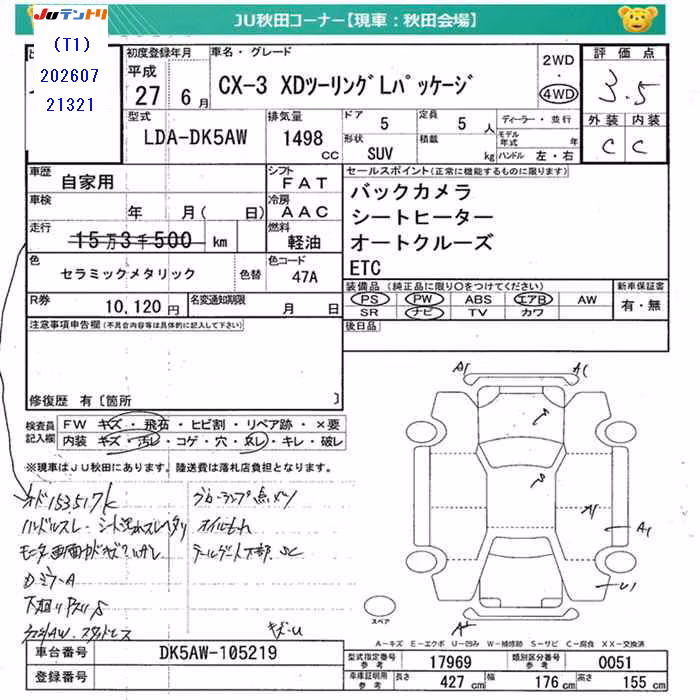 JUテントリ
JU秋田コーナー【現車：秋田会場】
(T1)
202607
21321
初度登録年月
平成
27 6 月
車名・グレード
CX-3 XDツーリングLパッケージ
2WD
・
4WD
評価点
3.5
外装 内装
C C
型式
LDA-DK5AW
排気量
1498
cc
ドア
5
定員
5 人
形状
SUV
積載
kg
ディーラー・並行
モデル年式 年
ハンドル 左・右
車歴
自家用
シフト
FAT
車検
年 月( 日)
冷房
AAC
走行
15万3千500 km
燃料
軽油
色
セラミックメタリック
色替
色コード
47A
R券
10,120 円
名変通知期限
月 日
セールスポイント(正常に機能するものに限ります)
バックカメラ
シートヒーター
オートクルーズ
ETC
装備品 (純正品に限り○をつけてください)
新車保証書
PS PW ABS エアB AW
SR ナビ TV カワ
有・無
後日品
注意事項申告欄(不具合内容等は具体的に記入して下さい)
修復歴 有〔箇所 〕
検査員
記入欄
FW キズ・飛石・ヒビ割・リペア跡・×要
内装 キズ・汚レ・コゲ・穴・スレ・キレ・破レ
※現車はJU秋田にあります。陸送費は落札店負担となります。
オド153517k
ハンドルスレ・シート汚れスレヘタリ
グローランプ点メツ
オイルもれ
テールゲート下部SC
DミラーA
キズ・U
A1
スペア
A－キズ E－エクボ U－凹み W－補修跡 S－サビ C－腐食 XX－交換済
車台番号
DK5AW-105219
登録番号
型式指定番号
参考
17969
類別区分番号
参考
0051
車庫証明用
参考
長さ 427 cm
幅 176 cm
高さ 155 cm